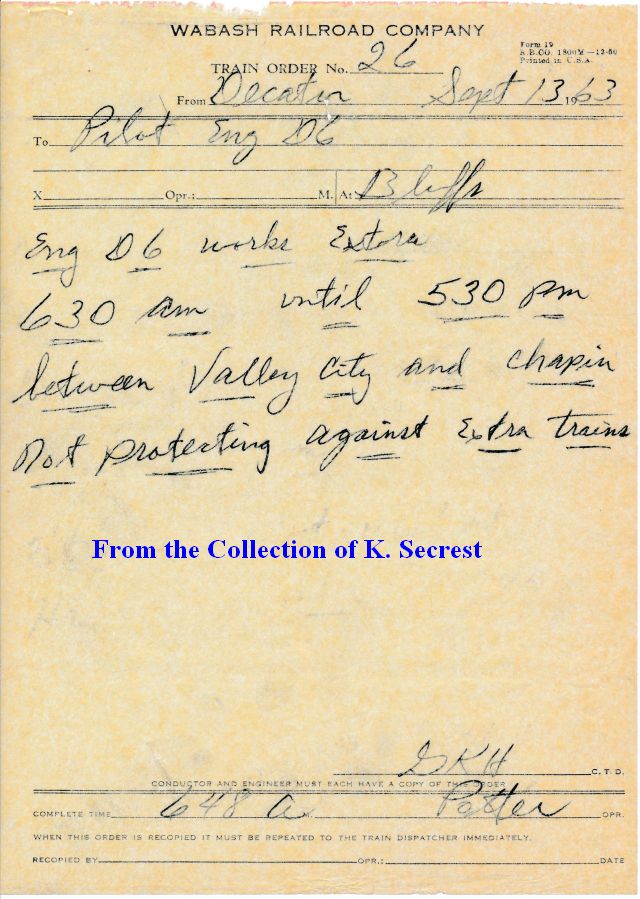 WABASH RAILROAD COMPANY
Form 19
R.B.CO. 1800M—12-60
Printed in U.S.A.
TRAIN ORDER No. 26
From Decatur Sept 13 1963
To Pilot Eng D6
X Opr.: M. At Bluffs
Eng D6 works Extra
630 am until 530 pm
between Valley City and Chapin
Not protecting against Extra trains
From the Collection of K. Secrest
GKH C.T.D.
CONDUCTOR AND ENGINEER MUST EACH HAVE A COPY OF THIS ORDER
COMPLETE TIME 648 a OPR.
WHEN THIS ORDER IS RECOPIED IT MUST BE REPEATED TO THE TRAIN DISPATCHER IMMEDIATELY.
RECOPIED BY OPR.: DATE